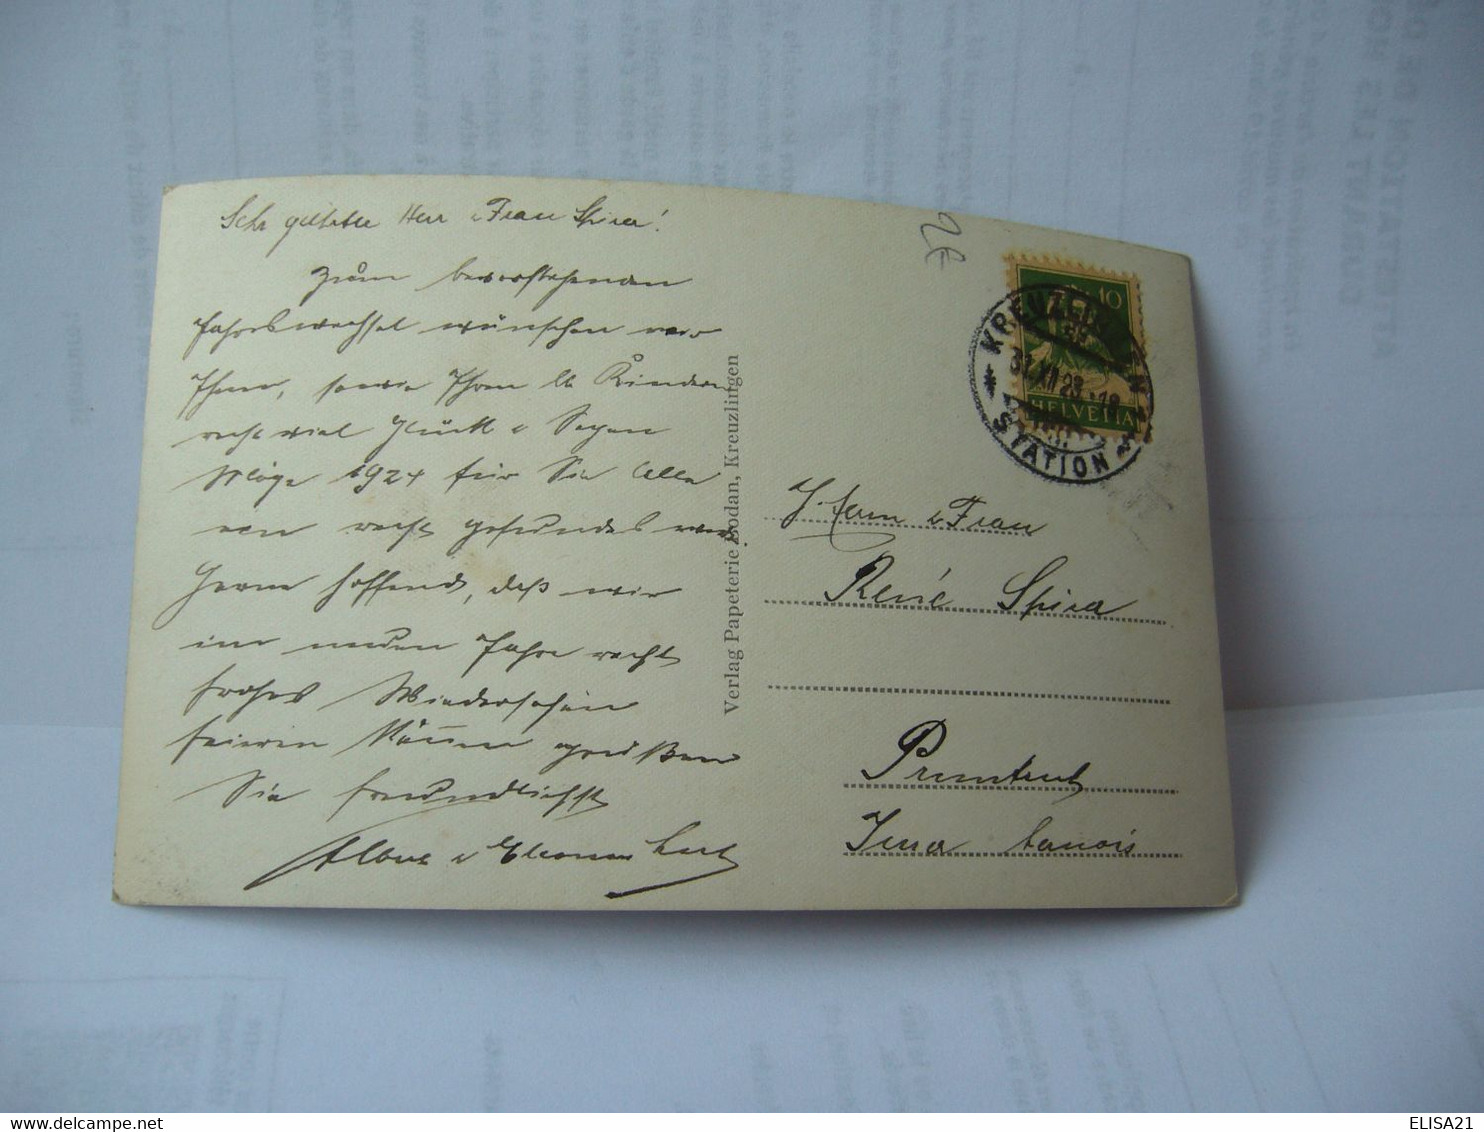 Sehr geehrter Herr u Frau Spira!
Zum bevorstehenden
Jahreswechsel wünschen wir
Ihnen, sowie Ihren lb Kindern
recht viel Glück u Segen
Möge 1924 für Sie Alle
ein recht gesundes
Gerne hoffend, daß wir
im neuen Jahre recht
frohes Wiedersehen
feiern können grüßen
Sie freundlichst
Albert u Eleonore
Verlag Papeterie Bodan, Kreuzlingen
2€
10
HELVETIA
KREUZLINGEN
31.XII.23.-18
STATION
Herrn u Frau
René Spira
Pruntrut
Jura bernois
ELISA21